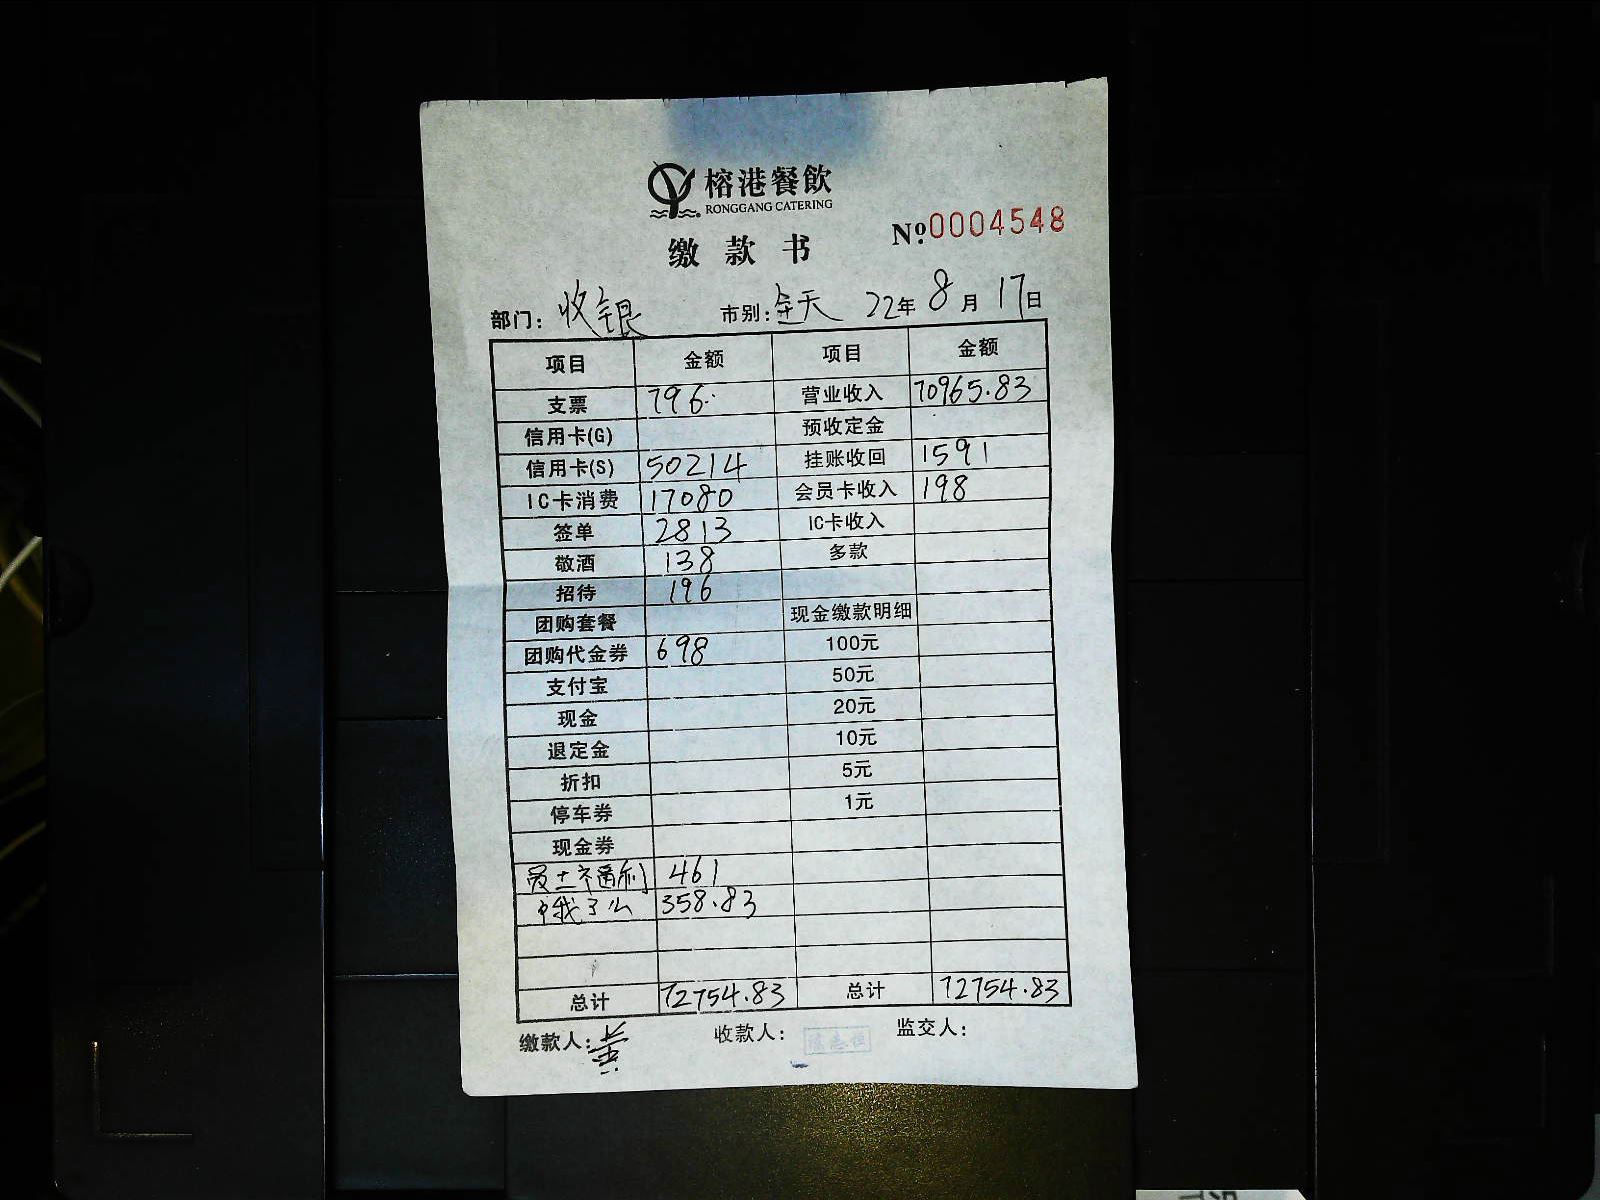 榕港餐飲
RONGGANG CATERING
缴款书 №0004548
部门：收银 市别：全天 22年8月17日
项目 金额 项目 金额
支票 796. 营业收入 70965.83
信用卡(G) 预收定金
信用卡(S) 50214 挂账收回 1591
IC卡消费 17080 会员卡收入 198
签单 2813 IC卡收入
敬酒 138 多款
招待 196
团购套餐 现金缴款明细
团购代金券 698 100元
支付宝 50元
现金 20元
退定金 10元
折扣 5元
停车券 1元
现金券
461
358.83
总计 72754.83 总计 72754.83
缴款人： 收款人： 监交人：